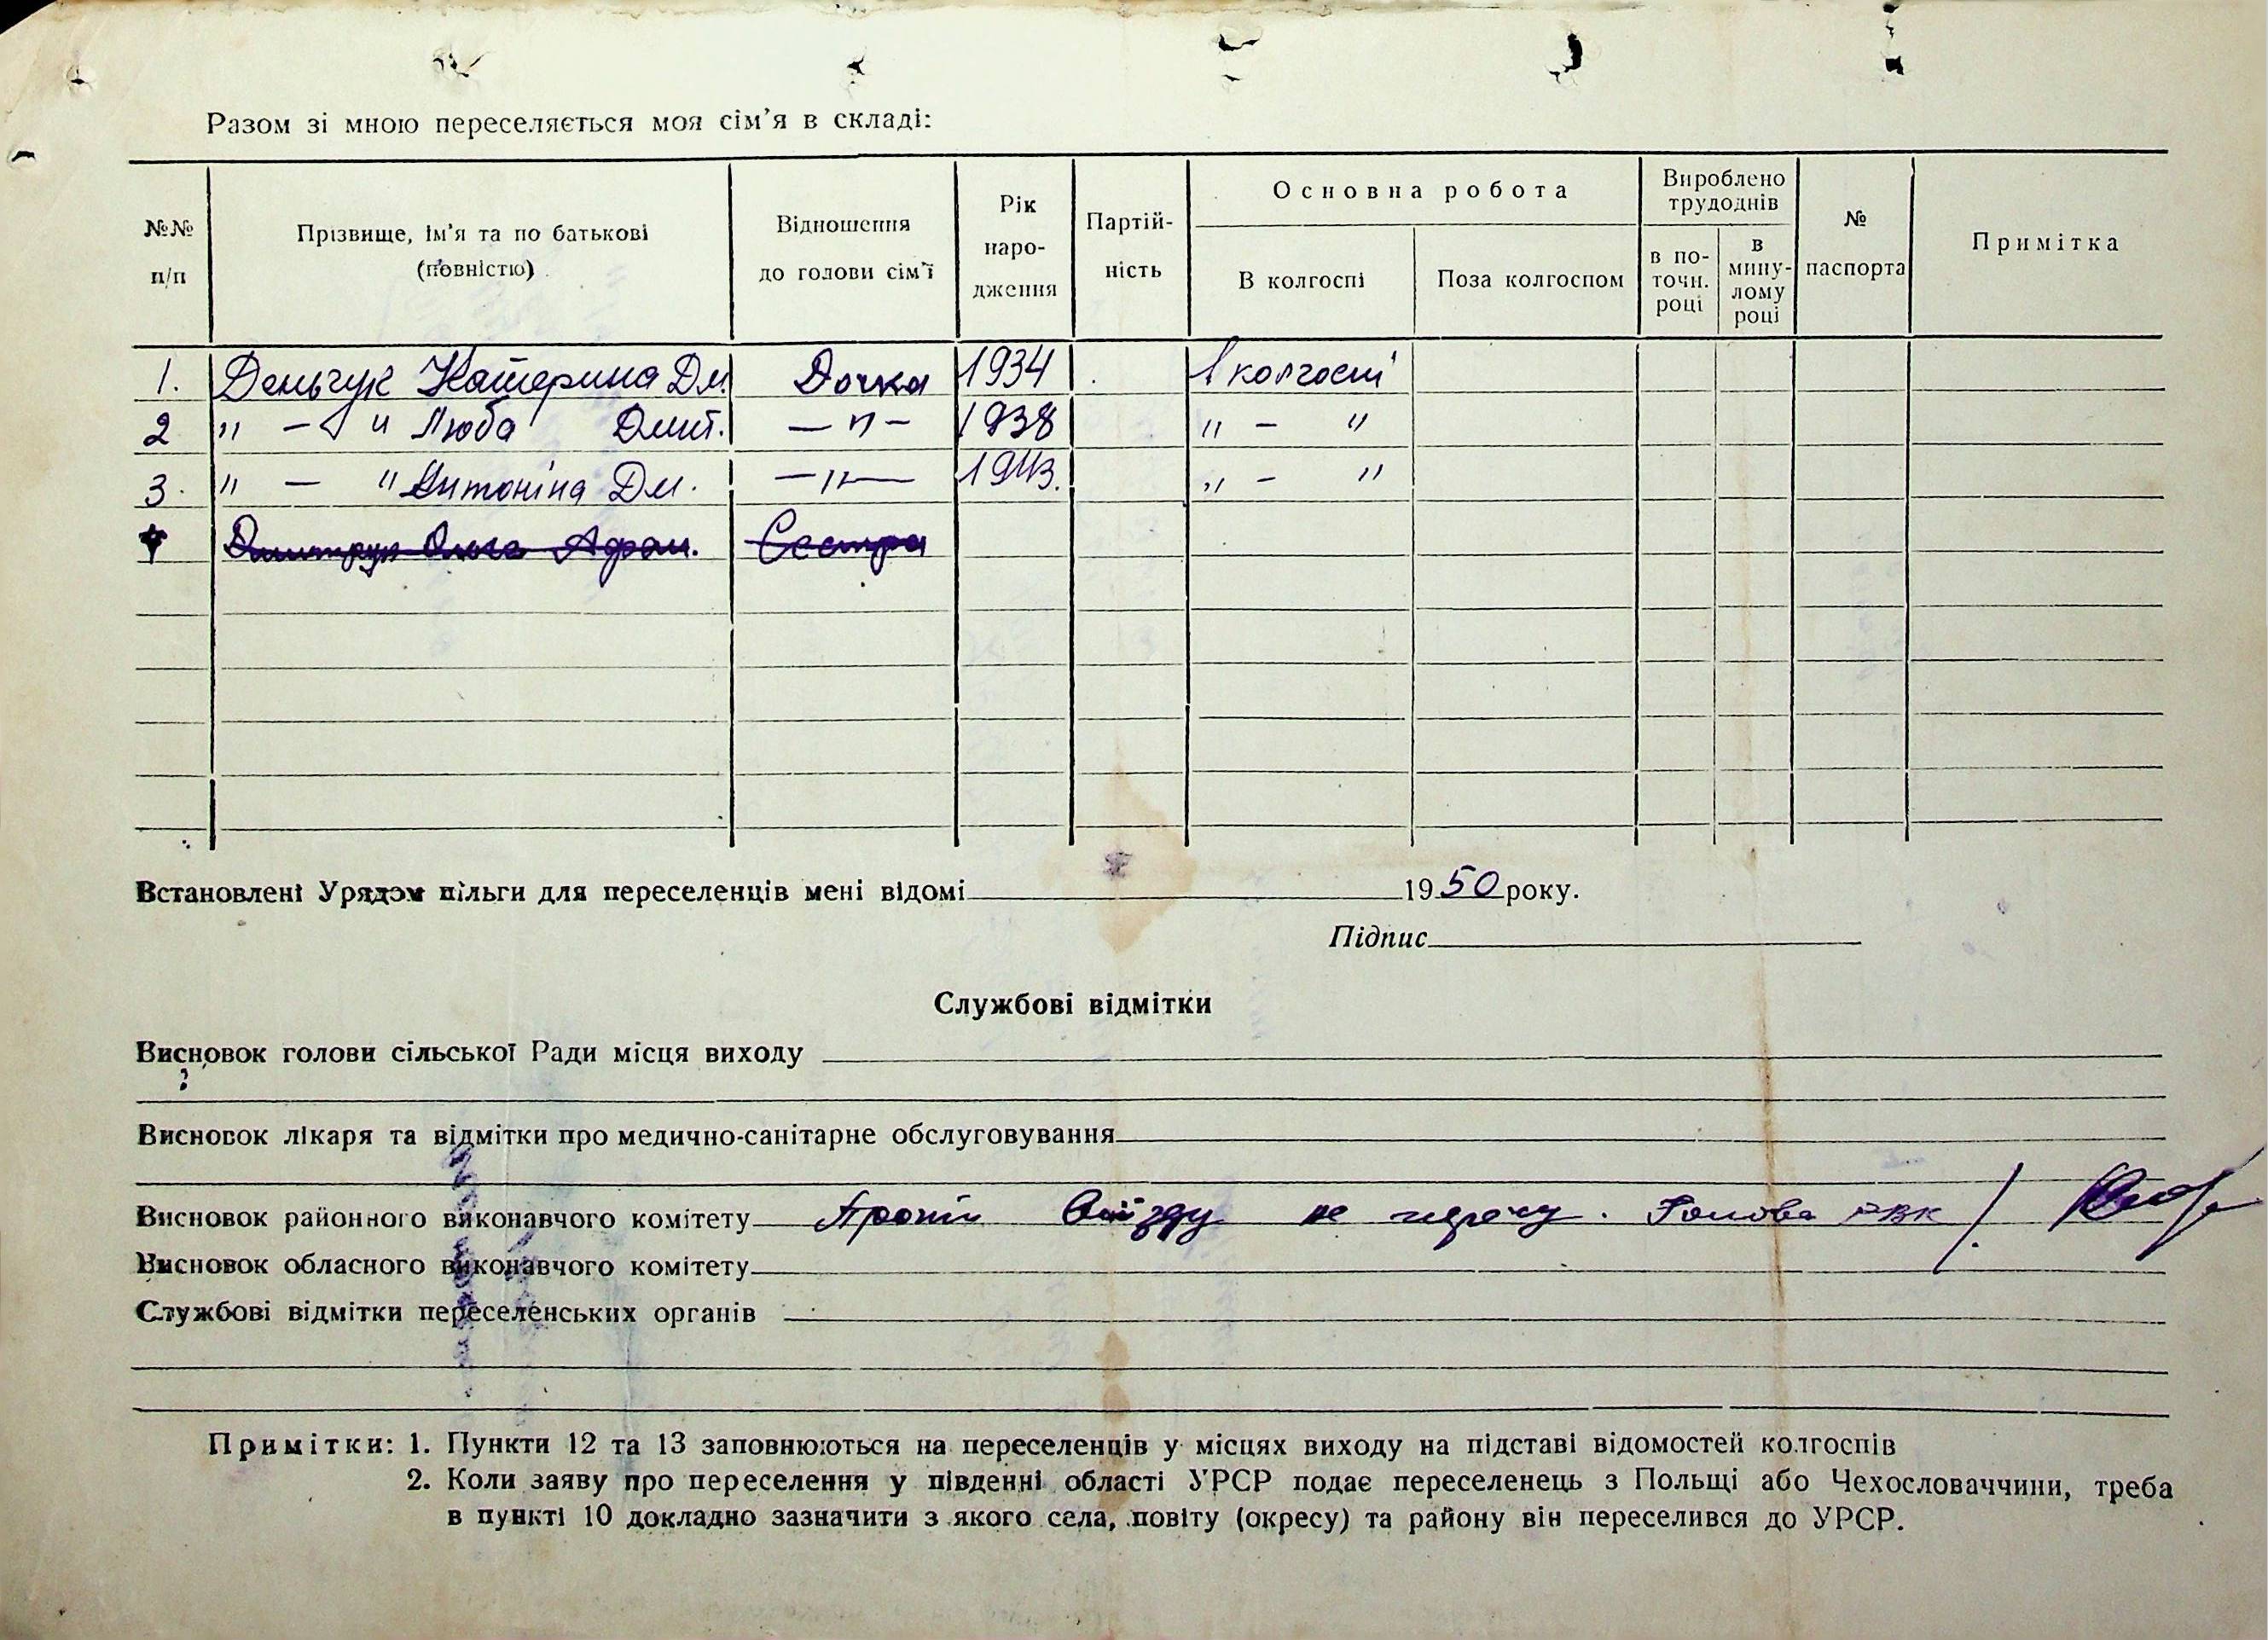 Разом зі мною переселяється моя сім'я в складі:
№№ п/п
Прізвище, ім'я та по батькові (повністю)
Відношення до голови сім'ї
Рік народження
Партійність
Основна робота
В колгоспі
Поза колгоспом
Вироблено трудоднів
в поточн. році
в минулому році
№ паспорта
Примітка
1. Деньчук Катерина Дм. Дочка 1934 В колгоспі
2 " — " Люба Дмит. — " — 1938 " — "
3. " — " Антоніна Дм. — " — 1943. " — "
4 Дмитрук Ольга Афан. Сестра
Встановлені Урядом пільги для переселенців мені відомі 1950 року.
Підпис
Службові відмітки
Висновок голови сільської Ради місця виходу
Висновок лікаря та відмітки про медично-санітарне обслуговування
Висновок районного виконавчого комітету Проти виїзду не перечу. Голова РВК
Висновок обласного виконавчого комітету
Службові відмітки переселенських органів
Примітки: 1. Пункти 12 та 13 заповнюються на переселенців у місцях виходу на підставі відомостей колгоспів
2. Коли заяву про переселення у південні області УРСР подає переселенець з Польщі або Чехословаччини, треба
в пункті 10 докладно зазначити з якого села, повіту (окресу) та району він переселився до УРСР.